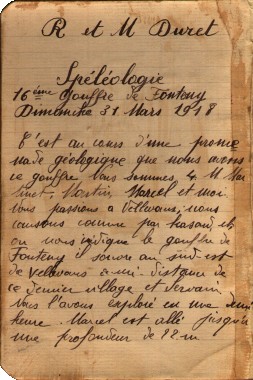 R et M Duret
Spéléologie
16ème Gouffre de Fonteny
Dimanche 31 Mars 1918
C'est au cours d'une prome
nade géologique que nous avons
ce gouffre. Nous sommes 4 M
Martin Marcel et moi
Nous passions à Vellevans; nous
causons comme par hasard et
on nous indique le gouffre de
Fonteny il s'ouvre au sud-est
de Vellevans à mi-distance de
ce dernier village et Servin.
Nous l'avons exploré en une demi
heure. Marcel est allé jusqu'à
une profondeur de 22 m